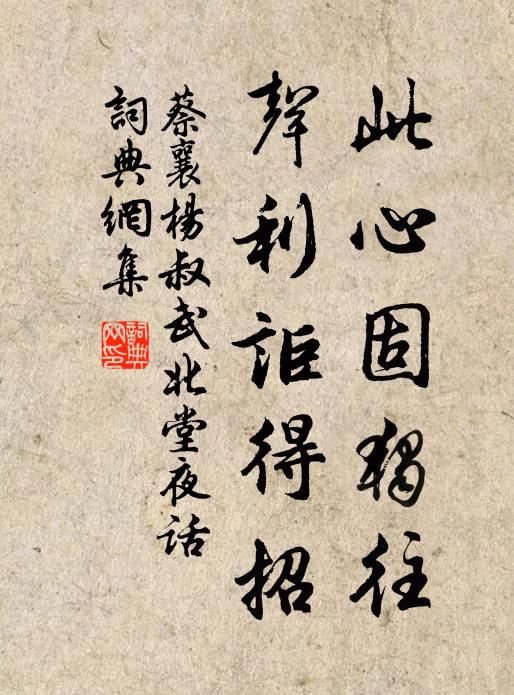 此心固獨往
聲利詎得招
蔡襄楊叔武北堂夜话
詞典網集
詞典網印